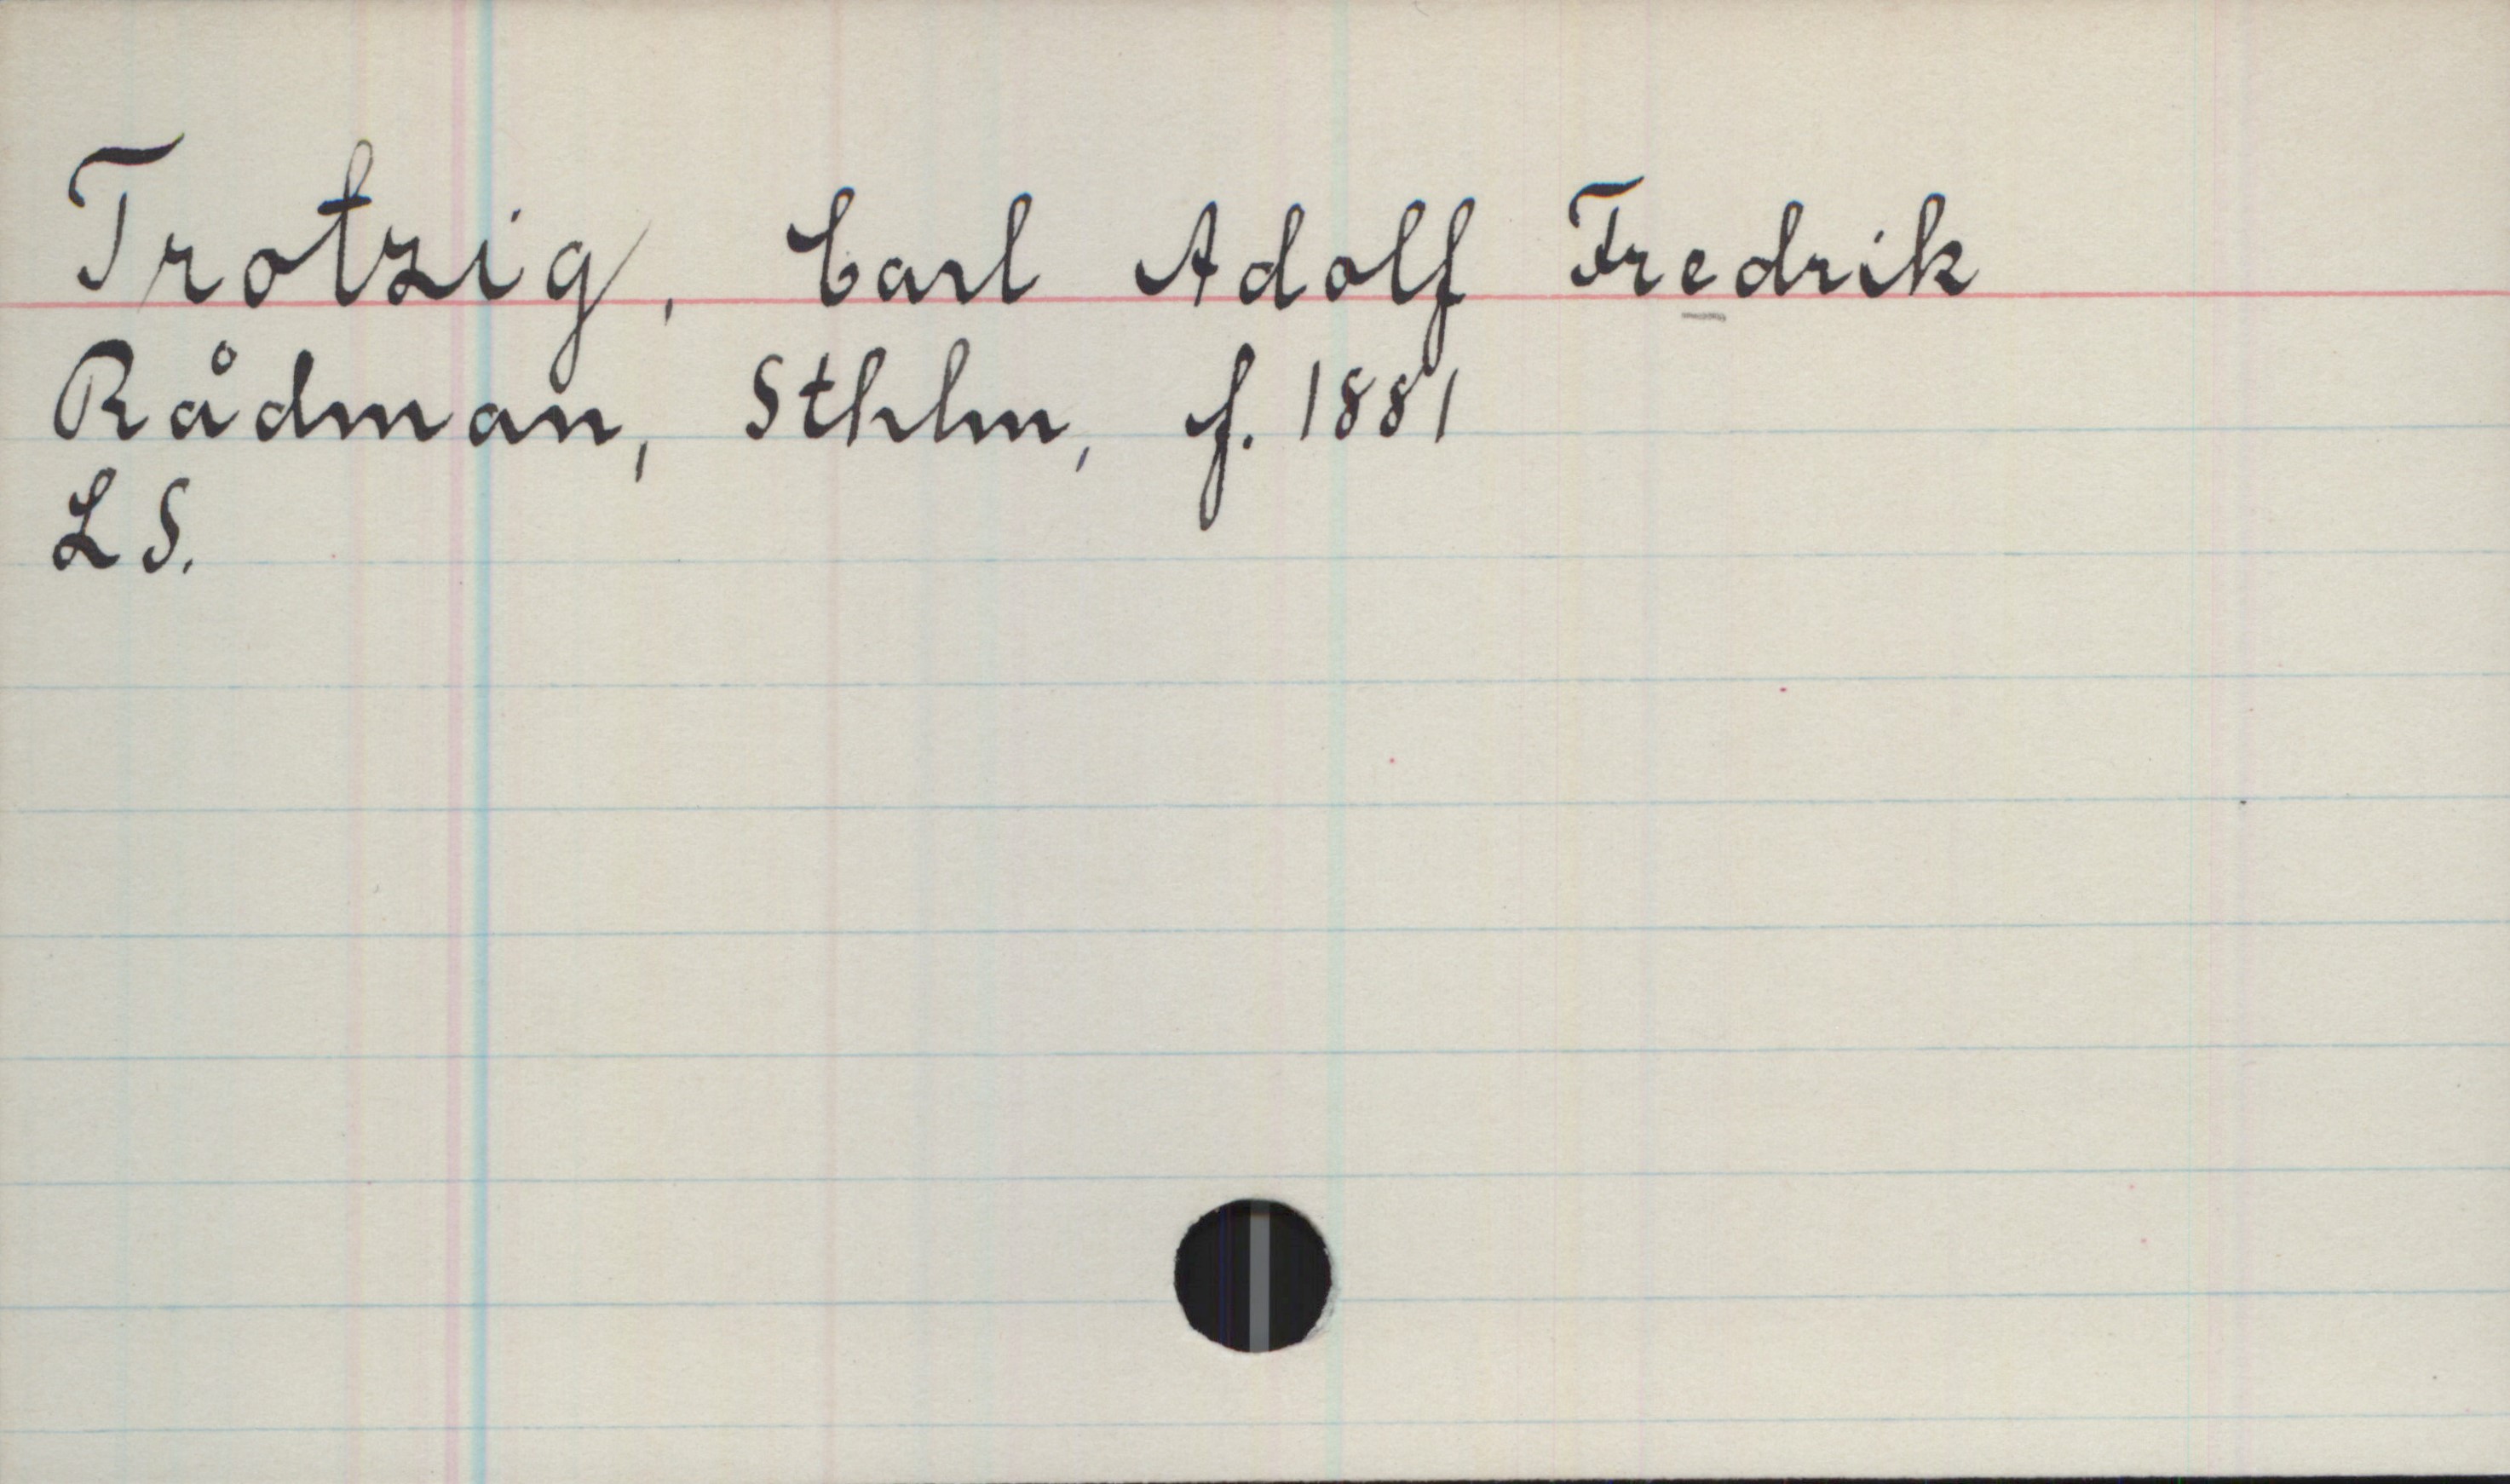 Trotzig, Carl Adolf Fredrik
Rådman, Sthlm, f. 1881
L S.